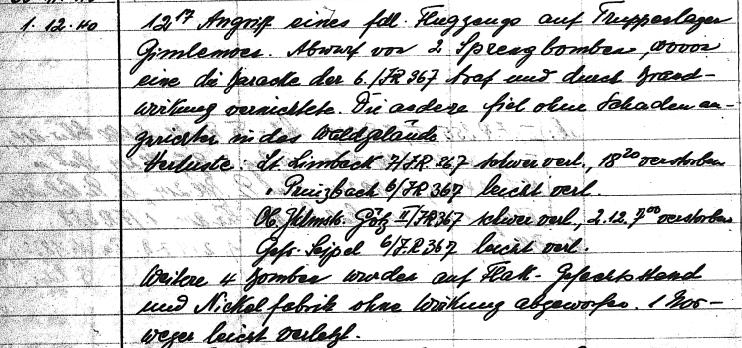 1.12.40 12¹⁷ Angriff eines fdl. Flugzeugs auf Truppenlager
Gimlemoen. Abwurf von 2 Sprengbomben, wovon
eine die Baracke der 6./JR 367 traf und durch Brand-
wirkung vernichtete. Die andere fiel ohne Schaden an-
gerichtet in das Waldgelände.
Verluste: Lt. Limback 7/JR 367 schwer verl., 18²⁰ verstorben
" Prinzbach 6/JR 367 leicht verl.
Ob. Götz II/JR367 schwer verl., 2.12. 7⁰⁰ verstorben
Gefr. Seipel 6/JR 367 leicht verl.
Weitere 4 Bomben wurden auf Flak-Gefechtsstand
und Nickelfabrik ohne Wirkung abgeworfen. 1 Nor-
weger leicht verletzt.